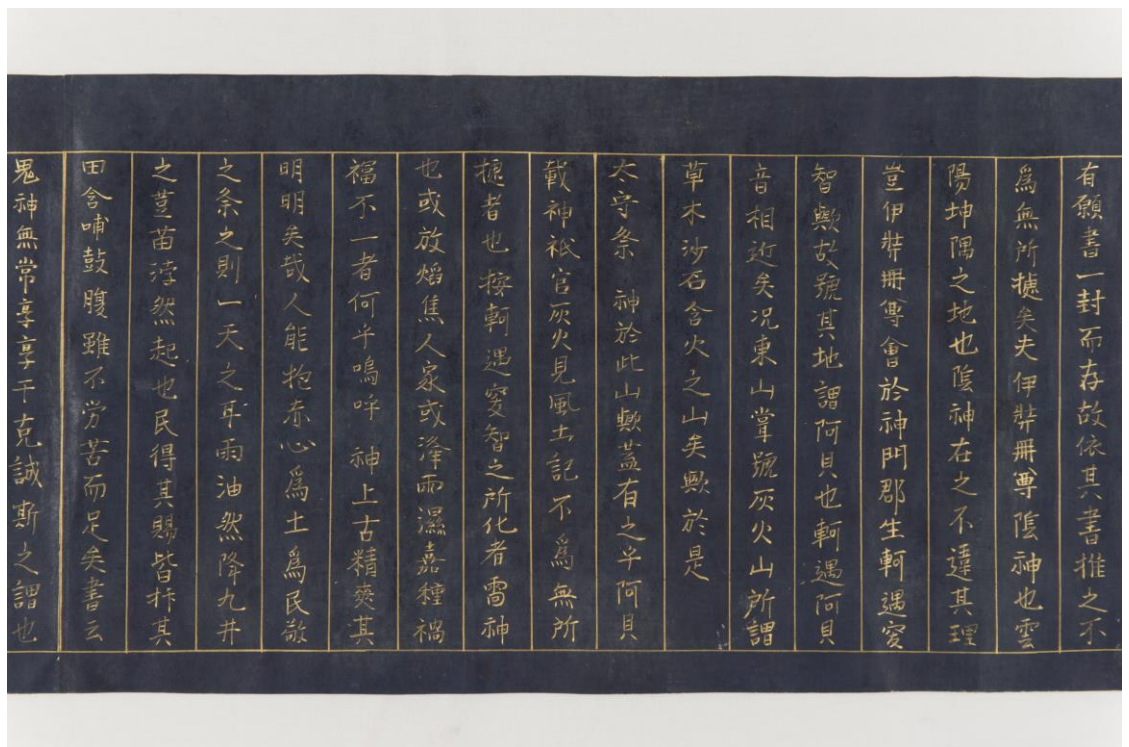 有願書一封而存故依其書推之不
爲無所據矣夫伊弉冊尊陰神也雲
陽坤隅之地也陰神在之不違其理
豈伊弉冊尊會於神門郡生軻遇突
智歟故號其地謂阿貝也軻遇阿貝
音相近矣况東山嘗號灰火山所謂
草木沙石含火之山矣歟於是
大守祭 神於此山歟蓋有之乎阿貝
載神祇官灰火見風土記不爲無所
據者也按軻遇突智之所化者雷神
也或放熖焦人家或淫雨濕嘉種禍
福不一者何乎嗚呼 神上古精爽其
明明矣哉人能抱赤心爲土爲民敬
之祭之則一天之耳雨油然降九井
之荳苗浡然起也民得其賜皆抃其
田含哺鼓腹雖不労苦而足矣書云
鬼神無常享享于克誠斯之謂也